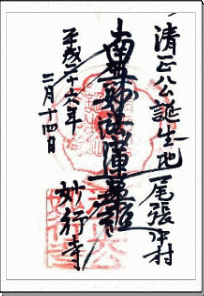 清正公誕生地 尾張中村
南無妙法蓮華経
平成二十六年
二月十四日
妙行寺